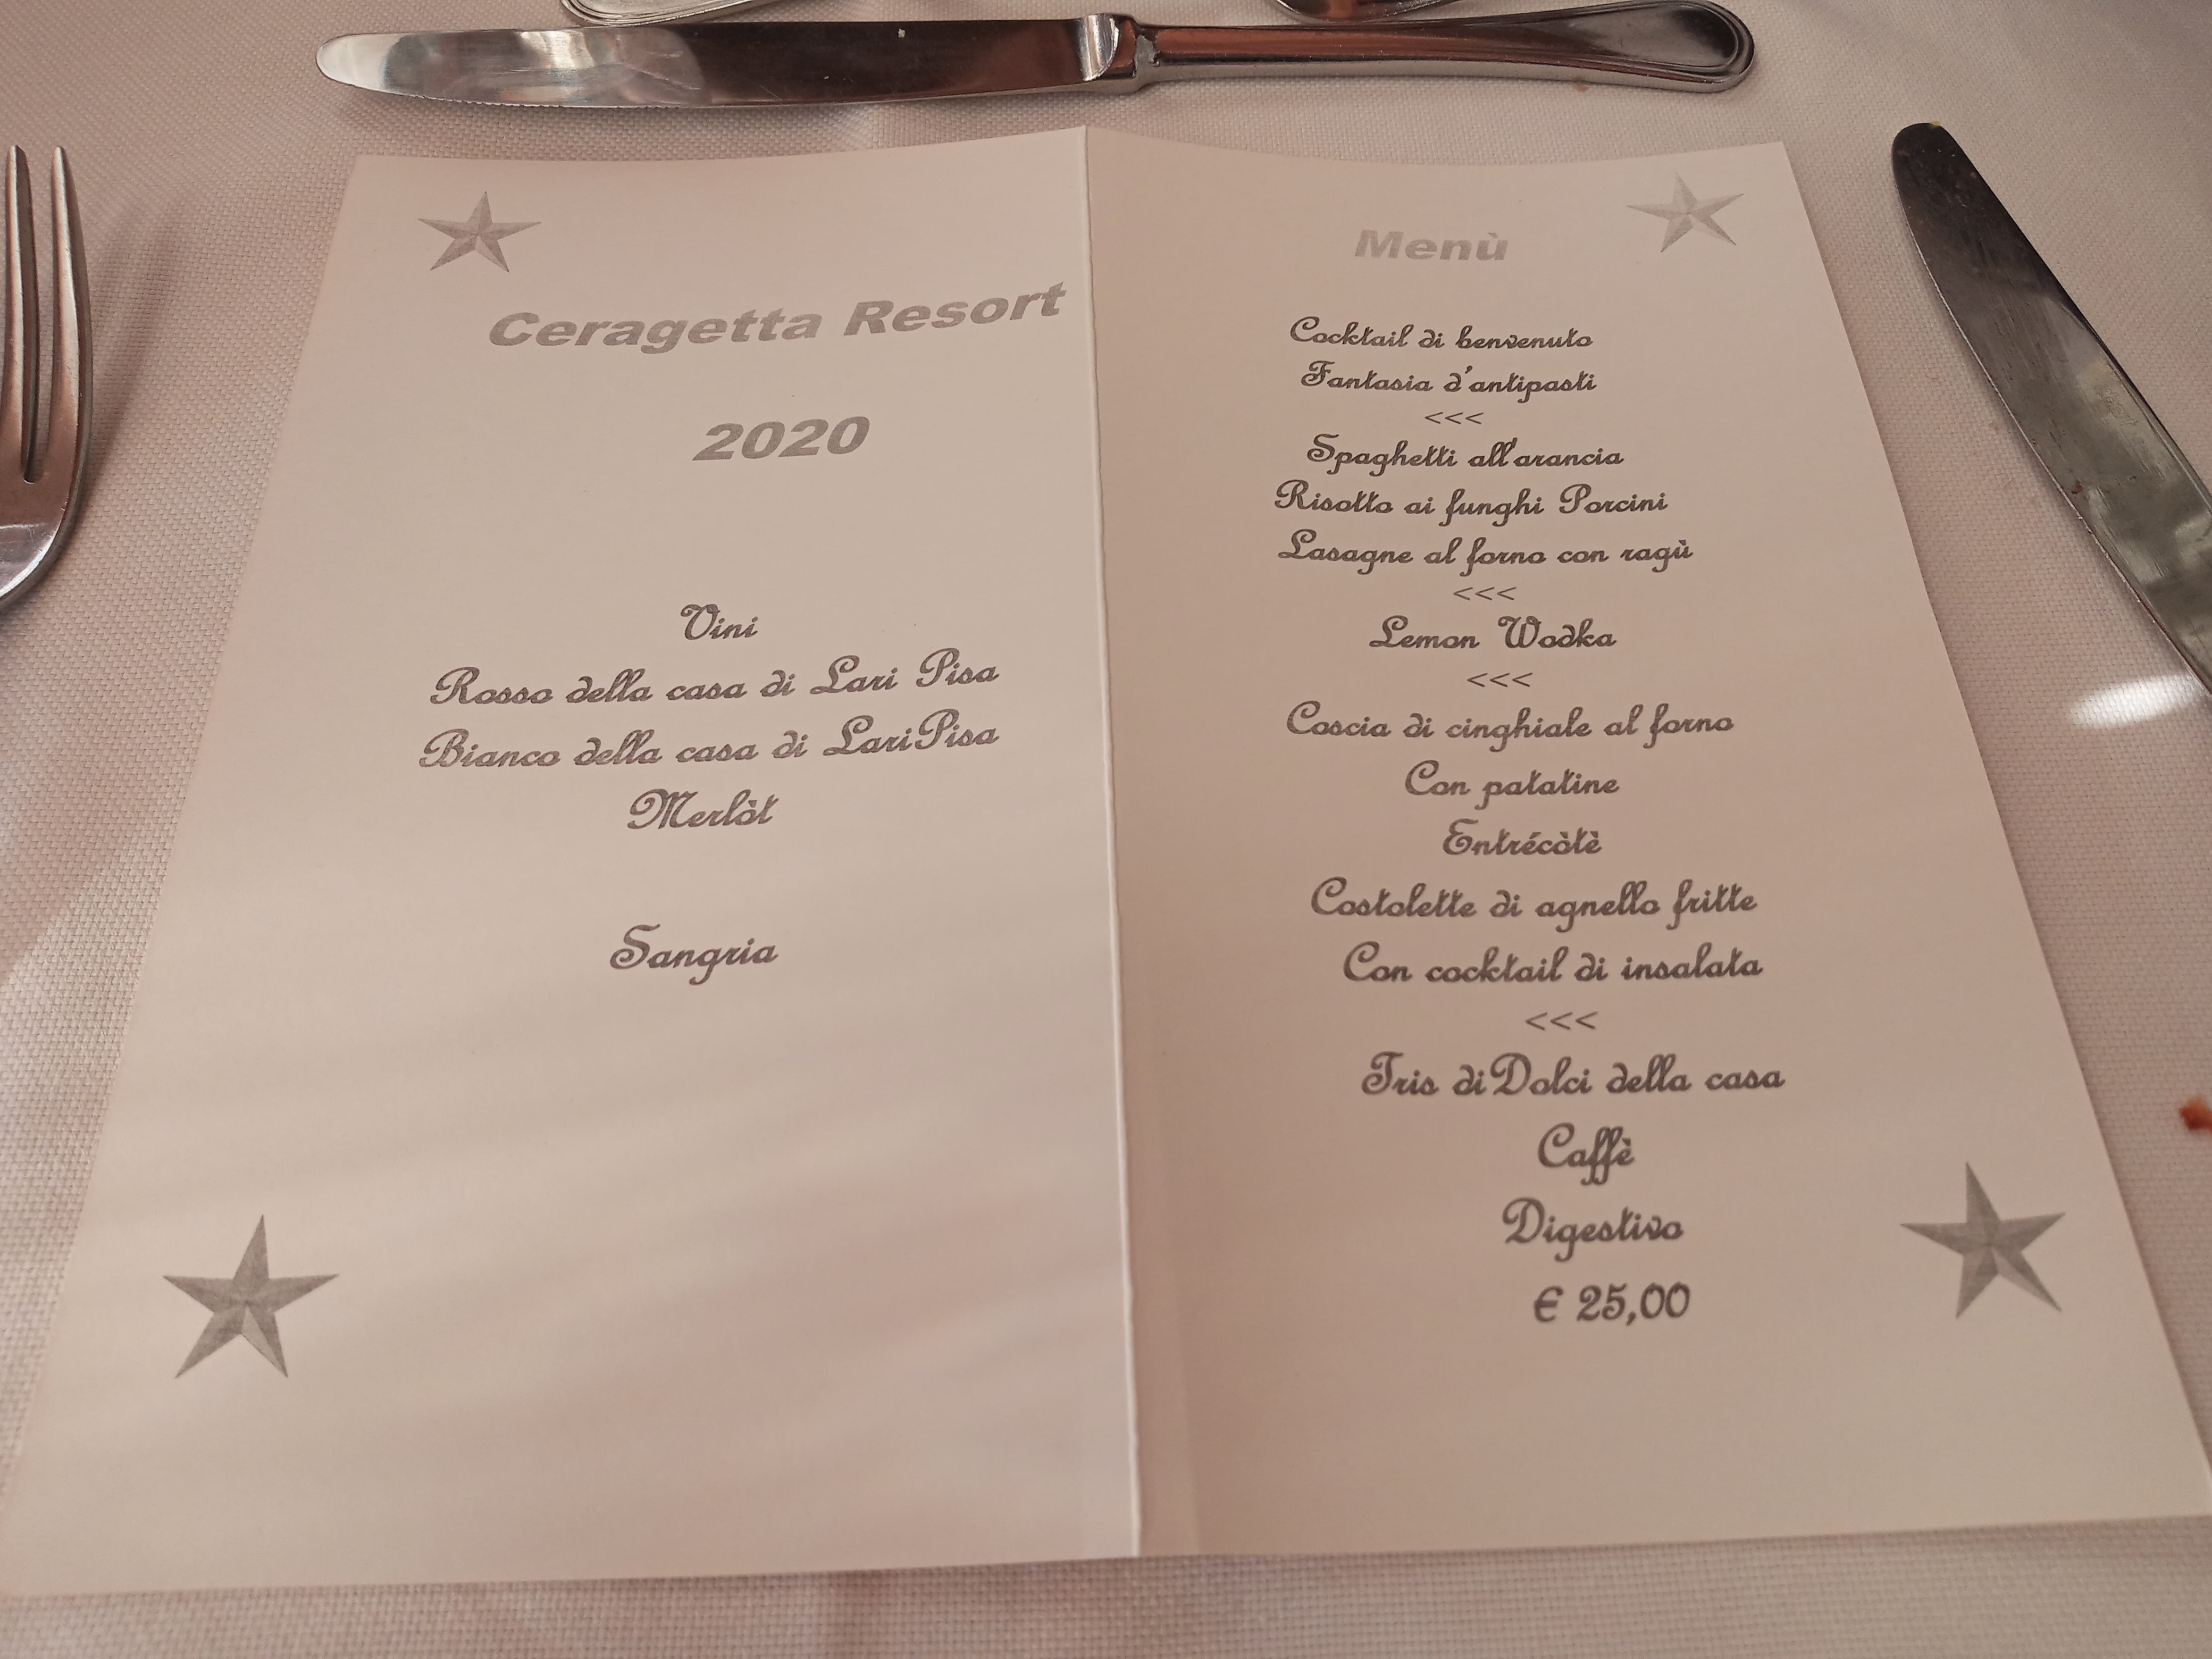 Ceragetta Resort
2020
Vini
Rosso della casa di Lari Pisa
Bianco della casa di LariPisa
Merlòt
Sangria
Menù
Cocktail di benvenuto
Fantasia d'antipasti
<<<
Spaghetti all'arancia
Risotto ai funghi Porcini
Lasagne al forno con ragù
<<<
Lemon Wodka
<<<
Coscia di cinghiale al forno
Con patatine
Entrécòtè
Costolette di agnello fritte
Con cocktail di insalata
<<<
Tris di Dolci della casa
Caffè
Digestivo
€ 25,00